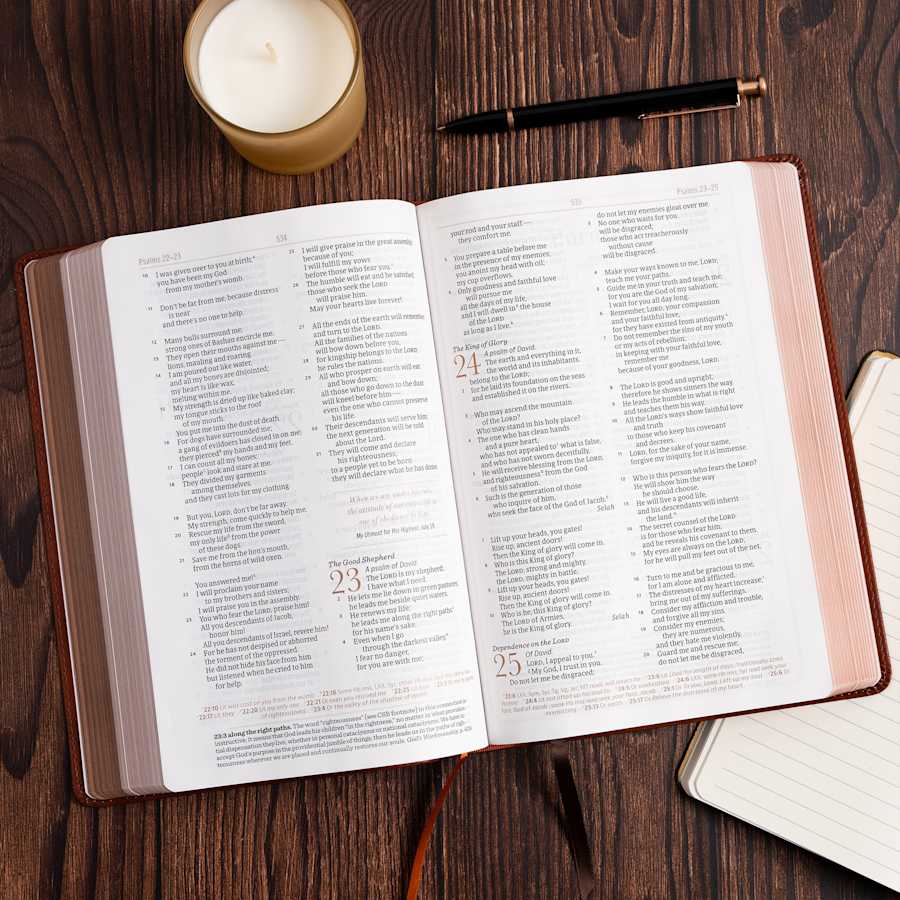 Psalms 22–23
534
10 I was given over to you at birth;
you have been my God
from my mother's womb.
11 Don't be far from me, because distress
is near
and there's no one to help.
12 Many bulls surround me;
strong ones of Bashan encircle me.
13 They open their mouths against me—
lions, mauling and roaring.
14 I am poured out like water,
and all my bones are disjointed;
my heart is like wax,
melting within me.
15 My strength is dried up like baked clay;
my tongue sticks to the roof
of my mouth.
You put me into the dust of death.
16 For dogs have surrounded me;
a gang of evildoers has closed in on me;
they pierced my hands and my feet.
17 I can count all my bones;
people look and stare at me.
18 They divided my garments
among themselves,
and they cast lots for my clothing.
19 But you, LORD, don't be far away.
My strength, come quickly to help me.
20 Rescue my life from the sword,
my only life from the power
of these dogs.
21 Save me from the lion's mouth,
from the horns of wild oxen.
You answered me!
22 I will proclaim your name
to my brothers and sisters;
I will praise you in the assembly.
23 You who fear the LORD, praise him!
All you descendants of Jacob,
honor him!
All you descendants of Israel, revere him!
24 For he has not despised or abhorred
the torment of the oppressed.
He did not hide his face from him
but listened when he cried to him
for help.
25 I will give praise in the great assembly
because of you;
I will fulfill my vows
before those who fear you.
26 The humble will eat and be satisfied;
those who seek the LORD
will praise him.
May your hearts live forever!
27 All the ends of the earth will remember
and turn to the LORD.
All the families of the nations
will bow down before you,
28 for kingship belongs to the LORD;
he rules the nations.
29 All who prosper on earth will eat
and bow down;
all those who go down to the dust
will kneel before him—
even the one who cannot preserve
his life.
30 Their descendants will serve him;
the next generation will be told
about the Lord.
31 They will come and declare
his righteousness;
to a people yet to be born
they will declare what he has done.
My Utmost for His Highest, July
The Good Shepherd
23 A psalm of David.
The LORD is my shepherd;
I have what I need.
2 He lets me lie down in green pastures;
he leads me beside quiet waters.
3 He renews my life;
he leads me along the right paths
for his name's sake.
4 Even when I go
through the darkest valley,
I fear no danger,
for you are with me;
23:3 along the right paths. The word "righteousness" [see CSB footnote] in this context is
instructive. It means that God leads his children "in the rightness," no matter in what providen-
tial dispensation they live, whether in personal cataclysms or national cataclysms. We have to
accept God's purpose in the providential jumble of things; then he leads us in the paths of righ-
teousness wherever we are placed and continually restores our souls.
535
Psalms 23–25
your rod and your staff—
they comfort me.
5 You prepare a table before me
in the presence of my enemies;
you anoint my head with oil;
my cup overflows.
6 Only goodness and faithful love
will pursue me
all the days of my life,
and I will dwell in the house
of the LORD
as long as I live.
The King of Glory
24 A psalm of David.
The earth and everything in it,
the world and its inhabitants,
belong to the LORD;
2 for he laid its foundation on the seas
and established it on the rivers.
3 Who may ascend the mountain
of the LORD?
Who may stand in his holy place?
4 The one who has clean hands
and a pure heart,
who has not appealed to what is false,
and who has not sworn deceitfully.
5 He will receive blessing from the LORD,
and righteousness from the God
of his salvation.
6 Such is the generation of those
who inquire of him,
who seek the face of the God of Jacob.
Selah
7 Lift up your heads, you gates!
Rise up, ancient doors!
Then the King of glory will come in.
8 Who is this King of glory?
The LORD, strong and mighty,
the LORD, mighty in battle.
9 Lift up your heads, you gates!
Rise up, ancient doors!
Then the King of glory will come in.
10 Who is he, this King of glory?
The LORD of Armies,
he is the King of glory.
Selah
Dependence on the LORD
25 Of David.
LORD, I appeal to you.
2 My God, I trust in you.
Do not let me be disgraced;
do not let my enemies gloat over me.
3 No one who waits for you
will be disgraced;
those who act treacherously
without cause
will be disgraced.
4 Make your ways known to me, LORD;
teach me your paths.
5 Guide me in your truth and teach me,
for you are the God of my salvation;
I wait for you all day long.
6 Remember, LORD, your compassion
and your faithful love,
for they have existed from antiquity.
7 Do not remember the sins of my youth
or my acts of rebellion;
in keeping with your faithful love,
remember me
because of your goodness, LORD.
8 The LORD is good and upright;
therefore he shows sinners the way.
9 He leads the humble in what is right
and teaches them his way.
10 All the LORD's ways show faithful love
and truth
to those who keep his covenant
and decrees.
11 LORD, for the sake of your name,
forgive my iniquity, for it is immense.
12 Who is this person who fears the LORD?
He will show him the way
he should choose.
13 He will live a good life,
and his descendants will inherit
the land.
14 The secret counsel of the LORD
is for those who fear him,
and he reveals his covenant to them.
15 My eyes are always on the LORD,
for he will pull my feet out of the net.
16 Turn to me and be gracious to me,
for I am alone and afflicted.
17 The distresses of my heart increase;
bring me out of my sufferings.
18 Consider my affliction and trouble,
and forgive all my sins.
19 Consider my enemies;
they are numerous,
and they hate me violently.
20 Guard me and rescue me;
do not let me be disgraced,